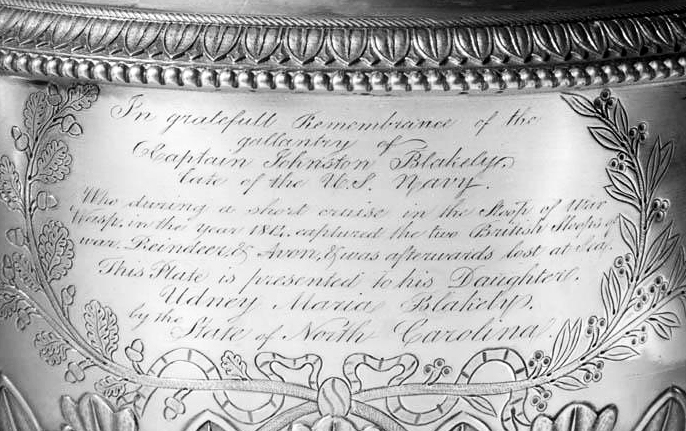 In gratefull Remembrance of the
gallantry of
Captain Johnston Blakely,
late of the U.S. Navy.
Who during a short cruise in the Sloop of War
Wasp, in the year 1814, captured the two British Sloops of
war, Reindeer, & Avon, & was afterwards lost at Sea.
This Plate is presented to his Daughter,
Udney Maria Blakely,
by the State of North Carolina.